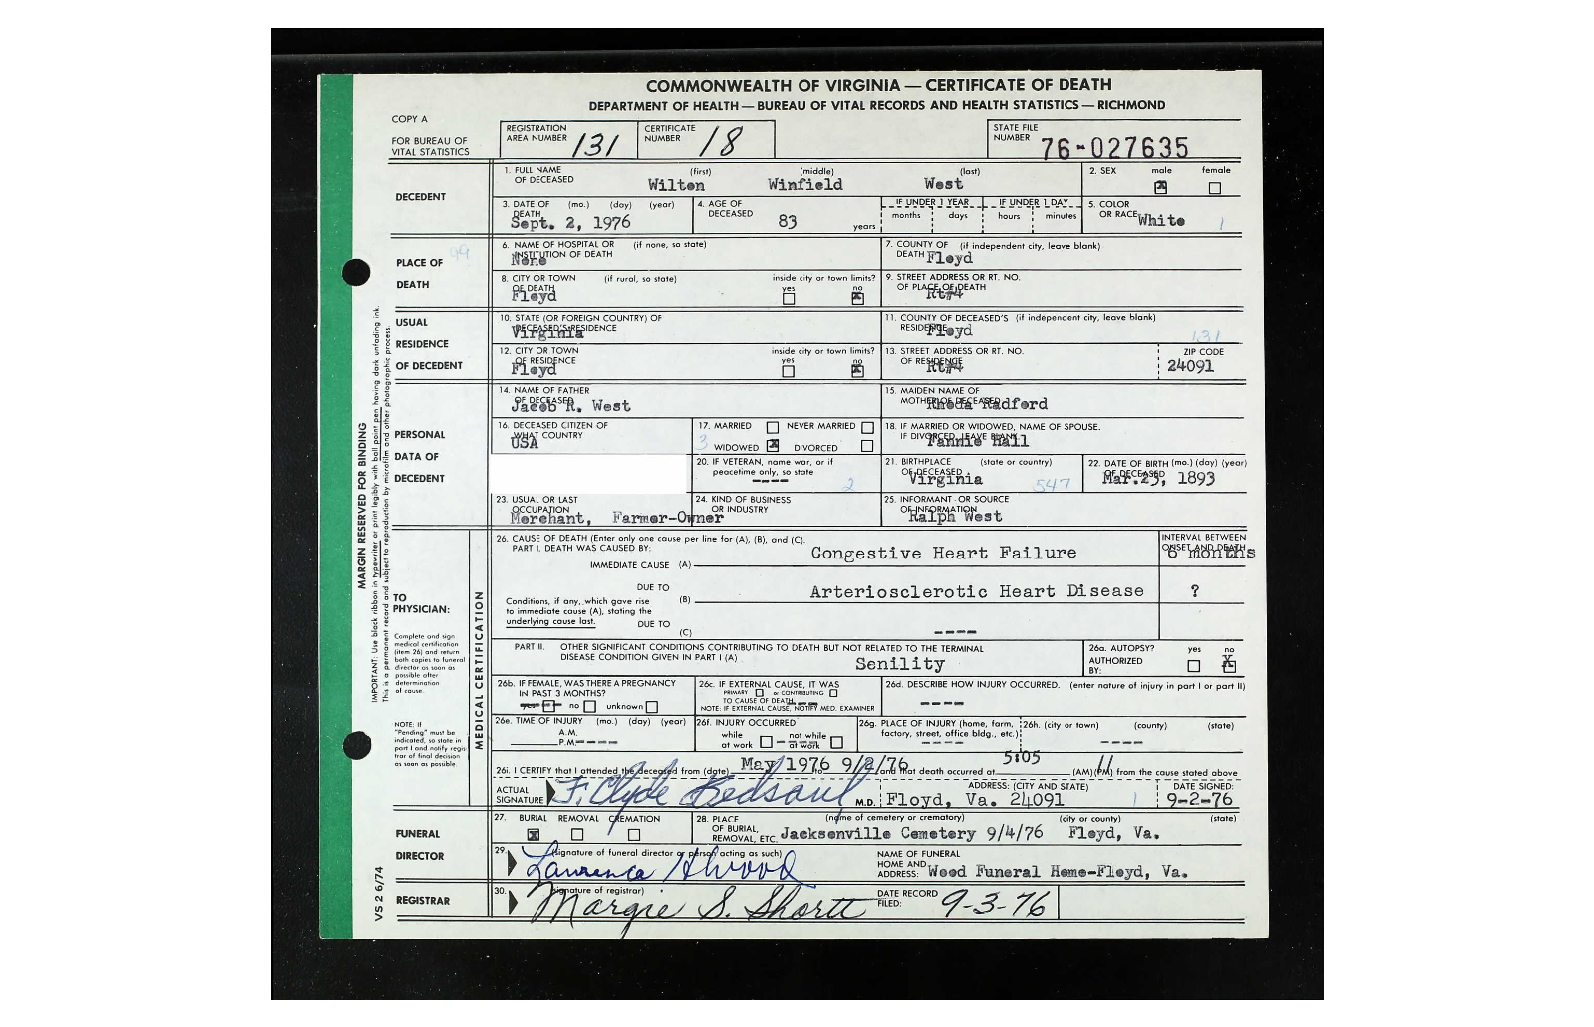 COMMONWEALTH OF VIRGINIA — CERTIFICATE OF DEATH
DEPARTMENT OF HEALTH — BUREAU OF VITAL RECORDS AND HEALTH STATISTICS — RICHMOND
COPY A
FOR BUREAU OF
VITAL STATISTICS
REGISTRATION
AREA NUMBER 131
CERTIFICATE
NUMBER 18
STATE FILE
NUMBER 76-027635
DECEDENT
1. FULL NAME
OF DECEASED
(first) (middle) (last)
Wilton Winfield West
2. SEX male female
3. DATE OF (mo.) (day) (year)
DEATH
Sept. 2, 1976
4. AGE OF
DECEASED
83 years
IF UNDER 1 YEAR IF UNDER 1 DAY
months days hours minutes
5. COLOR
OR RACE White 1
PLACE OF 99
DEATH
6. NAME OF HOSPITAL OR (if none, so state)
INSTITUTION OF DEATH
None
7. COUNTY OF (if independent city, leave blank)
DEATH Floyd
8. CITY OR TOWN (if rural, so state) inside city or town limits?
OF DEATH yes no
Floyd
9. STREET ADDRESS OR RT. NO.
OF PLACE OF DEATH
Rt#4
USUAL
RESIDENCE
OF DECEDENT
10. STATE (OR FOREIGN COUNTRY) OF
DECEASED'S RESIDENCE
Virginia
11. COUNTY OF DECEASED'S (if independent city, leave blank)
RESIDENCE Floyd
131
12. CITY OR TOWN inside city or town limits?
OF RESIDENCE yes no
Floyd
13. STREET ADDRESS OR RT. NO.
OF RESIDENCE
Rt#4
ZIP CODE
24091
PERSONAL
DATA OF
DECEDENT
14. NAME OF FATHER
OF DECEASED
Jacob R. West
15. MAIDEN NAME OF
MOTHER OF DECEASED
Rhoda Radford
16. DECEASED CITIZEN OF
WHAT COUNTRY
USA
17. MARRIED NEVER MARRIED
3 WIDOWED DIVORCED
18. IF MARRIED OR WIDOWED, NAME OF SPOUSE.
IF DIVORCED, LEAVE BLANK
Fannie Hall
20. IF VETERAN, name war, or if
peacetime only, so state
---- 2
21. BIRTHPLACE (state or country)
OF DECEASED
Virginia 547
22. DATE OF BIRTH (mo.) (day) (year)
OF DECEASED
Mar. 23, 1893
23. USUAL OR LAST
OCCUPATION
Merchant, Farmer-Owner
24. KIND OF BUSINESS
OR INDUSTRY
25. INFORMANT OR SOURCE
OF INFORMATION
Ralph West
MARGIN RESERVED FOR BINDING
IMPORTANT: Use black ribbon in typewriter or print legibly with ball point pen having dark unfading ink.
This is a permanent record and subject to reproduction by microfilm and other photographic process.
TO
PHYSICIAN:
Complete and sign
medical certification
(item 26) and return
both copies to funeral
director as soon as
possible after
determination
of cause.
NOTE: If
"Pending" must be
indicated, so state in
part I and notify regis
trar of final decision
as soon as possible.
MEDICAL CERTIFICATION
26. CAUSE OF DEATH (Enter only one cause per line for (A), (B), and (C).
PART I. DEATH WAS CAUSED BY:
IMMEDIATE CAUSE (A) Congestive Heart Failure
INTERVAL BETWEEN
ONSET AND DEATH
6 months
DUE TO
Conditions, if any, which gave rise (B) Arteriosclerotic Heart Disease ?
to immediate cause (A), stating the
underlying cause last. DUE TO
(C) ----
PART II. OTHER SIGNIFICANT CONDITIONS CONTRIBUTING TO DEATH BUT NOT RELATED TO THE TERMINAL
DISEASE CONDITION GIVEN IN PART I (A)
Senility
26a. AUTOPSY? yes no
AUTHORIZED
BY:
26b. IF FEMALE, WAS THERE A PREGNANCY
IN PAST 3 MONTHS?
yes no unknown
26c. IF EXTERNAL CAUSE, IT WAS
PRIMARY or CONTRIBUTING
TO CAUSE OF DEATH
NOTE: IF EXTERNAL CAUSE, NOTIFY MED. EXAMINER
26d. DESCRIBE HOW INJURY OCCURRED. (enter nature of injury in part I or part II)
----
26e. TIME OF INJURY (mo.) (day) (year)
A.M.
P.M. ----
26f. INJURY OCCURRED
while not while
at work at work
26g. PLACE OF INJURY (home, farm,
factory, street, office bldg., etc.)
----
26h. (city or town) (county) (state)
----
26i. I CERTIFY that I attended the deceased from (date) May 1976 to 9/2/76 and that death occurred at 5:05 (AM) (PM) from the cause stated above
ACTUAL
SIGNATURE F. Clyde Bedsaul M.D.
ADDRESS: (CITY AND STATE)
Floyd, Va. 24091 1
DATE SIGNED:
9-2-76
FUNERAL
DIRECTOR
27. BURIAL REMOVAL CREMATION
28. PLACE (name of cemetery or crematory) (city or county) (state)
OF BURIAL,
REMOVAL, ETC. Jacksonville Cemetery 9/4/76 Floyd, Va.
29. (signature of funeral director or person acting as such)
Laurence Atwood
NAME OF FUNERAL
HOME AND
ADDRESS: Wood Funeral Home-Floyd, Va.
REGISTRAR
30. (signature of registrar)
Margie S. Shortt
DATE RECORD
FILED: 9-3-76
VS 2 6/74